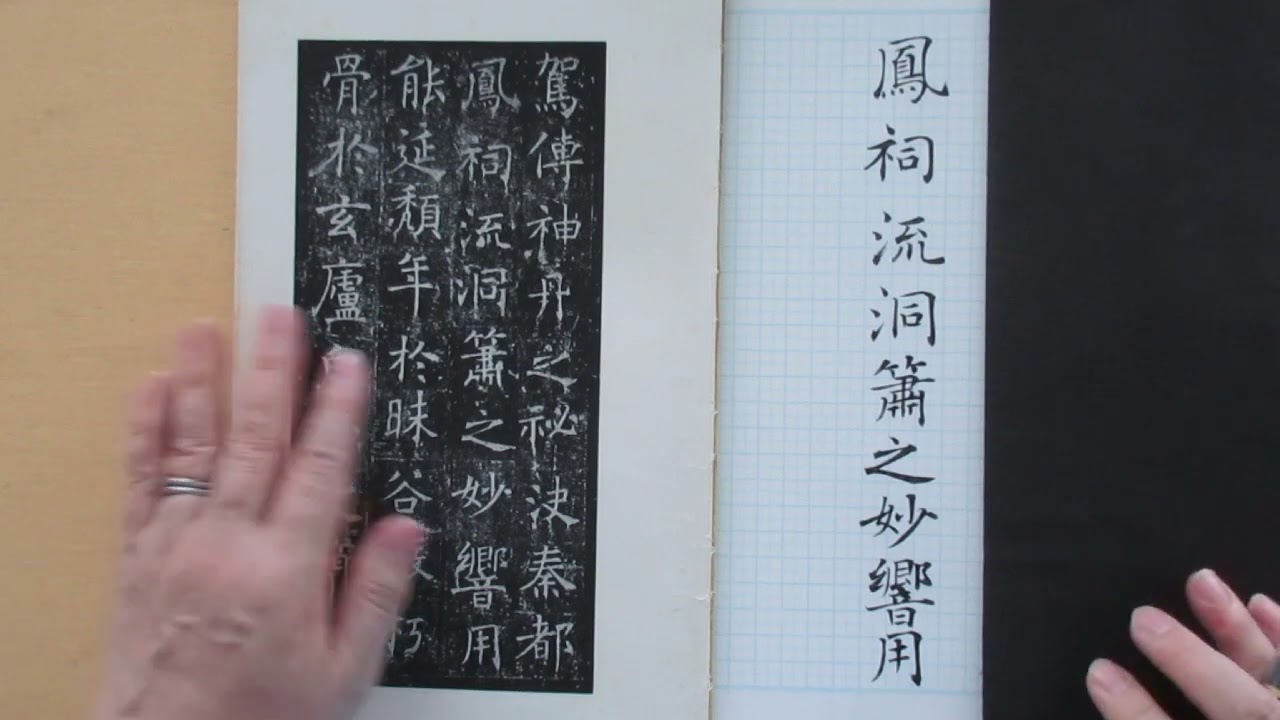 鳳祠流洞簫之妙響用
駕傳神丹之祕決秦都
鳳祠流洞簫之妙響用
能延頹年於昧谷
骨於玄廬